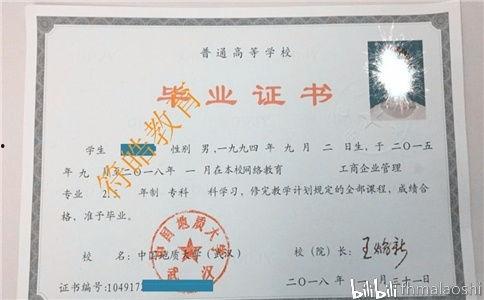 普通高等学校
毕业证书
学生 性别 男,一九九四年 九 月 二 日生,于二〇一五
年 九 月至二〇一八年 一 月在本校网络教育 工商企业管理
专业 2. 年制 专科 科学习,修完教学计划规定的全部课程,成绩合
格,准予毕业。
校 名:中国地质大学(武汉) 校(院)长:
证书编号:104917
二〇一八年 月三十一日
中国地质大学
武汉
符皓教育
bilibili fhmalaoshi